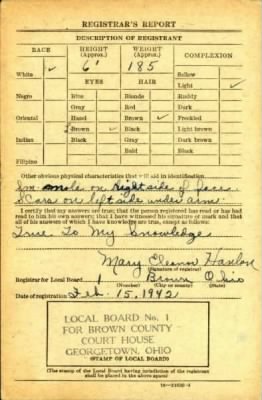 REGISTRAR'S REPORT
DESCRIPTION OF REGISTRANT
RACE HEIGHT (Approx.) WEIGHT (Approx.) COMPLEXION
White ✓ 6' 185 Sallow
EYES HAIR Light ✓
Negro Blue Blonde Ruddy
Gray Red Dark
Oriental Hazel Brown ✓ Freckled
Brown ✓ Black Light brown
Indian Black Gray Dark brown
Bald Black
Filipino
Other obvious physical characteristics that will aid in identification
Sm. mole on right side of face.
Scars on left side under arm
I certify that my answers are true; that the person registered has read or has had
read to him his own answers; that I have witnessed his signature or mark and that
all of his answers of which I have knowledge are true, except as follows:
True To My Knowledge
Mary Eleanor Hanlon
(Signature of registrar)
Registrar for Local Board 1 Brown Ohio
Date of registration Feb. 15, 1942
LOCAL BOARD No. 1
FOR BROWN COUNTY
COURT HOUSE
GEORGETOWN, OHIO
(STAMP OF LOCAL BOARD)
(The stamp of the Local Board having jurisdiction of the registrant
shall be placed in the above space)